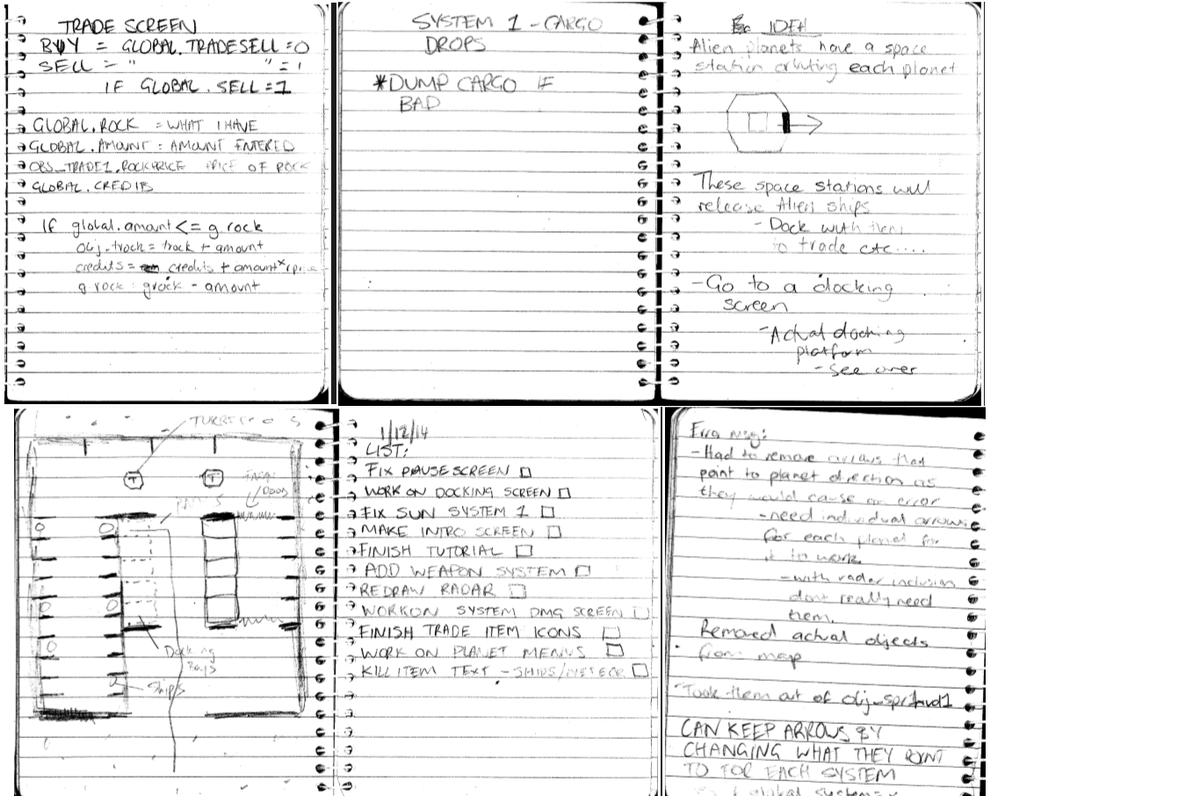 TRADE SCREEN
BUY = GLOBAL.TRADESELL = 0
SELL = " " = 1
IF GLOBAL.SELL = 1
GLOBAL.ROCK = WHAT I HAVE
GLOBAL.AMOUNT = AMOUNT ENTERED
OBJ_TRADE1.ROCKPRICE PRICE OF ROCK
GLOBAL.CREDITS
If global.amount <= g.rock
obj.trock = trock + amount
credits = credits + amount*
g rock = grock - amount
SYSTEM 1 - CARGO
DROPS
*DUMP CARGO IF
BAD
IDEA
Alien planets have a space
station orbiting each planet
These space stations will
release Alien ships
- Dock with them
to trade etc....
- Go to a docking
screen
- Actual docking
platform
- See over
TURRETS
T T
Doors
Docking
Bays
Ships
1/12/14
LIST:
FIX PAUSE SCREEN
WORK ON DOCKING SCREEN
FIX SUN SYSTEM 1
MAKE INTRO SCREEN
FINISH TUTORIAL
ADD WEAPON SYSTEM
REDRAW RADAR
WORK ON SYSTEM DMG SCREEN
FINISH TRADE ITEM ICONS
WORK ON PLANET MENUS
KILL ITEM TEXT - SHIPS/
- Had to remove arrows that
point to planet direction as
they would cause an error
- need individual arrows
for each planet for
it to work
- with radar inclusion
dont really need
them.
Removed actual objects
from map
- Took them out of
CAN KEEP ARROWS BY
CHANGING WHAT THEY POINT
TO FOR EACH SYSTEM
global.system